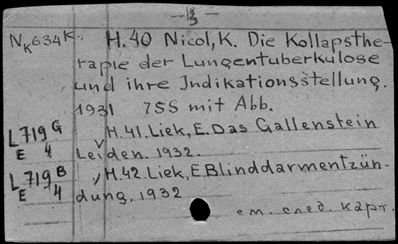 -13-
NK634K. H.40 Nicol, K. Die Kollapsthe-
rapie der Lungentuberkulose
und ihre Indikationsstellung.
1931 75S mit Abb.
L719G H.41. Liek, E. Das Gallenstein
E 4 Leiden. 1932.
L719B H.42. Liek, E Blinddarmentzün-
E 4 dung. 1932
см. след. карт.